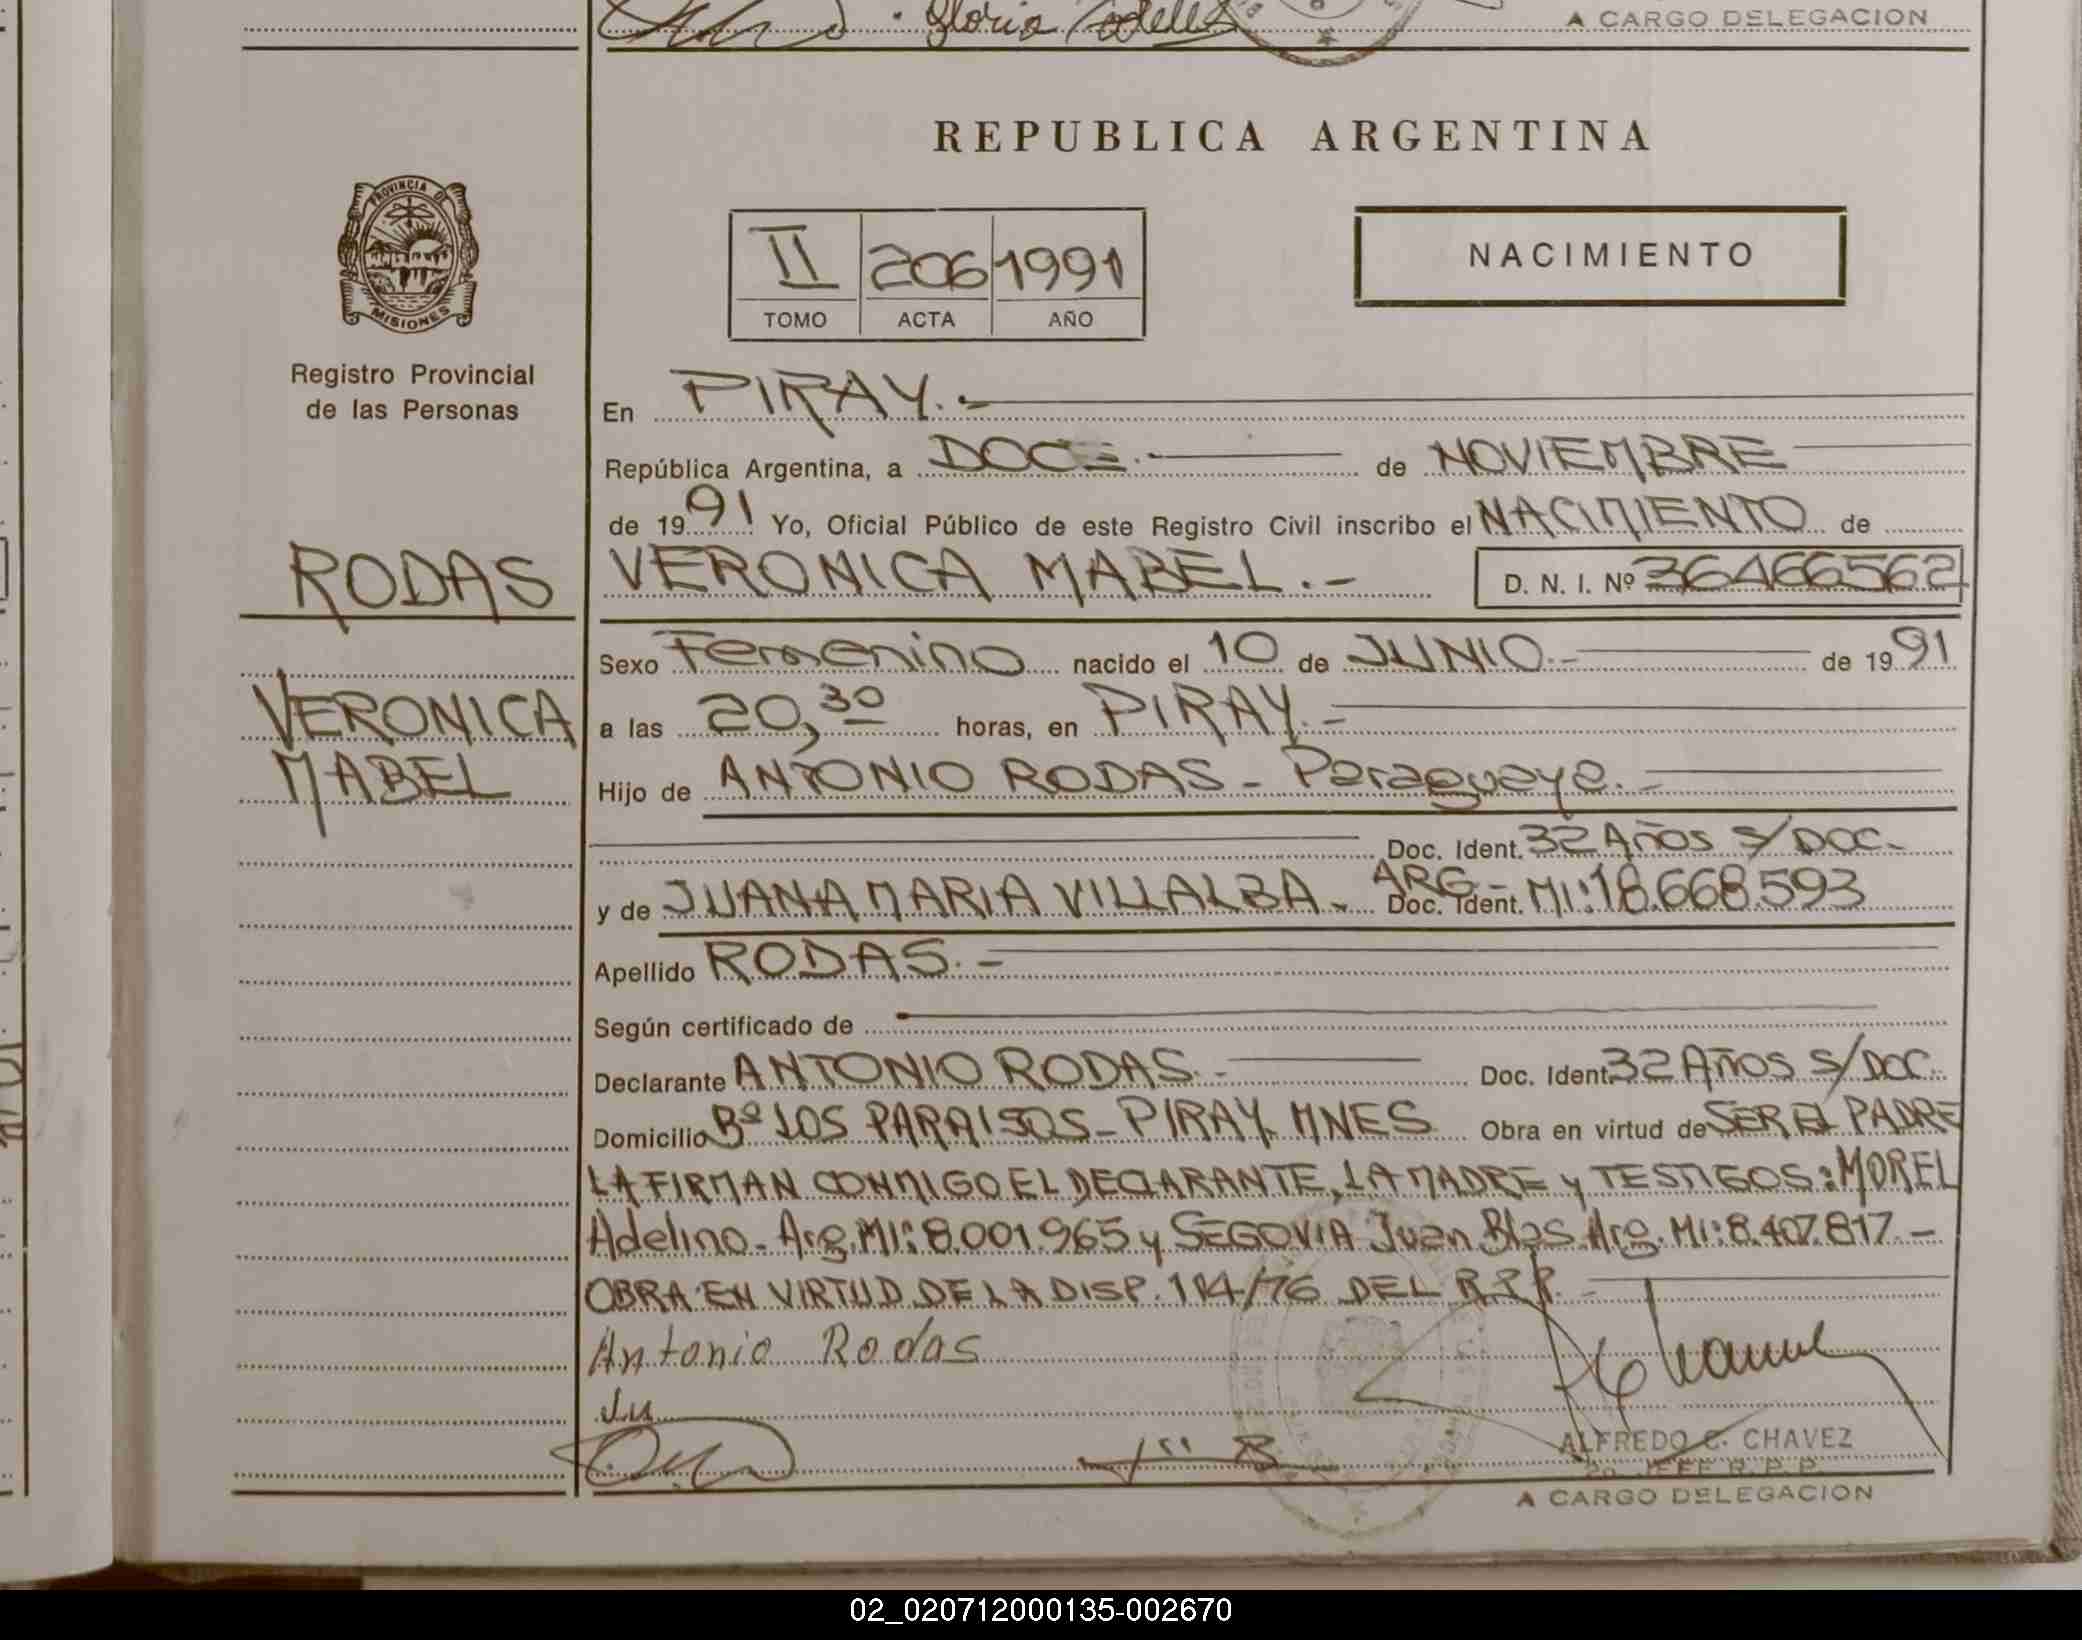 Gloria
A CARGO DELEGACION
REPUBLICA ARGENTINA
PROVINCIA DE
MISIONES
II 206 1991
TOMO ACTA AÑO
NACIMIENTO
Registro Provincial
de las Personas
En PIRAY.-
República Argentina, a DOCE.- de NOVIEMBRE
de 1991 Yo, Oficial Público de este Registro Civil inscribo el NACIMIENTO de
RODAS
VERONICA MABEL.- D. N. I. Nº 36466562
Sexo Femenino nacido el 10 de JUNIO.- de 1991
VERONICA
MABEL
a las 20,30 horas, en PIRAY.-
Hijo de ANTONIO RODAS - Paraguaya.-
Doc. Ident. 32 AÑOS S/DOC.-
y de JUANA MARIA VILLALBA.- ARG.- Doc. Ident. MI: 18.668.593
Apellido RODAS.-
Según certificado de
Declarante ANTONIO RODAS.- Doc. Ident. 32 AÑOS S/DOC.
Domicilio Bº LOS PARAISOS - PIRAY MNES Obra en virtud de SER EL PADRE
LA FIRMAN CONMIGO EL DECLARANTE, LA MADRE y TESTIGOS: MOREL
Adelino - Arg. MI: 8.001.965 y SEGOVIA Juan Blas Arg. MI: 8.407.817.-
OBRA EN VIRTUD DE LA DISP. 114/76 DEL R.P.P.-
Antonio Rodas
ALFREDO C. CHAVEZ
2o. JEFE R. P. P.
A CARGO DELEGACION
02_020712000135-002670